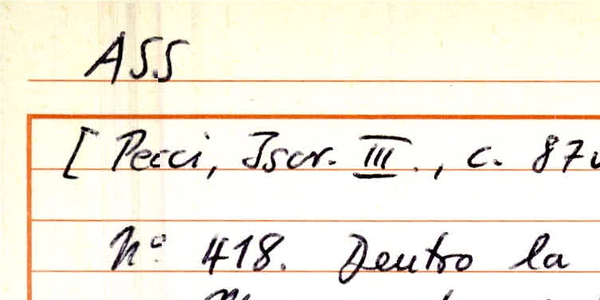 ASS
[ Pecci, Iscr. III., c. 87v
N° 418. Dentro la